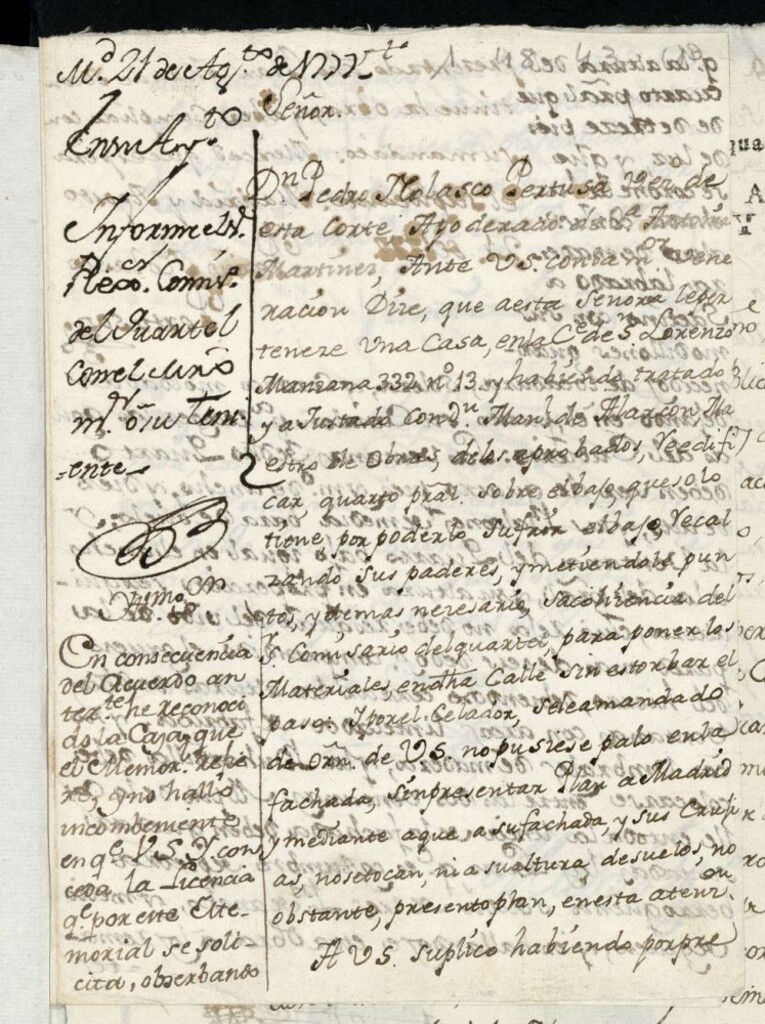 M.d 21 de Ag.to de
Señor.
En su Ay.to
Informe el S.r
Rexo. Comis.
del Quartel
con el Mro
m.or ó su Teni
=ente
D.n Pedro Nolasco Pertusa vez.o de
esta Corte Apoderado de D.a Antonia
Martinez, Ante V.S. con la m.or vene
racion Dize, que a esta Señora le per
teneze Una Casa, en la C.e de S.n Lorenzo
Manzana 332 n.o 13. y habiendo tratado
y ajustado con D.n Man.l de Alarcon Ma
estro de Obras, de los aprobados, Reedifi
car, quarto pral. sobre el bajo, que solo
tiene por poderlo sufrir el bajo, Recal
zando sus paderes, y metiendole pun
tos, y demas neresario, saco lizencia del
S. Comisario del quartel, para poner los
Materiales, en dha Calle sin estorbar el
paso: Y por el Zelador, se le a mandado
de Orn. de V.S. no pusiese palo en la
fachada, sin presentar Plan a Madrid
y mediante a que, a su fachada, y sus Cruji
as, no se tocan, ni a su altura de suelos, no
obstante, presento plan, en esta atenz.on
A V.S. suplico habiendo por pre
En consecuencia
del Acuerdo an
ter.te he reconoci
do la Casa, que
el Memor.l refie
re, y no hallo
incombeniente
en q.e V.S.Y. con
ceda la Licencia
q.e por este Me
morial se soli
cita, obserbando